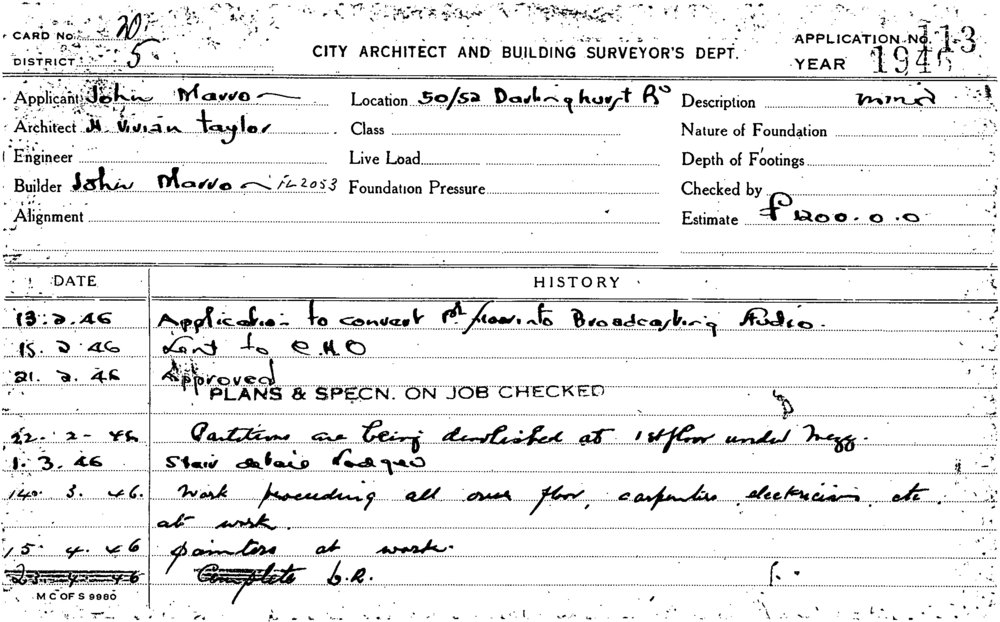 CARD No. 20
DISTRICT 5
CITY ARCHITECT AND BUILDING SURVEYOR'S DEPT.
APPLICATION No. 113
YEAR 1946
Applicant John Marro
Location 50/52 Darlinghurst Rd
Description minor
Architect H Vivian Taylor
Class
Nature of Foundation
Engineer
Live Load
Depth of Footings
Builder John Marro
Foundation Pressure
Checked by
Alignment
Estimate £1200.0.0
DATE HISTORY
13.2.46 Application to convert 1st floor into Broadcasting Studio.
15.2.46 Sent to C.H.O
21.2.46 Approved
PLANS & SPECN. ON JOB CHECKED
22.2.46 Partitions are being demolished at 1st floor under Mezz.
1.3.46 Stair details lodged
14.3.46. Work proceeding all over floor, carpenters electricians etc
at work.
15.4.46 painters at work.
23.4.46 Complete
M C OF S 9980